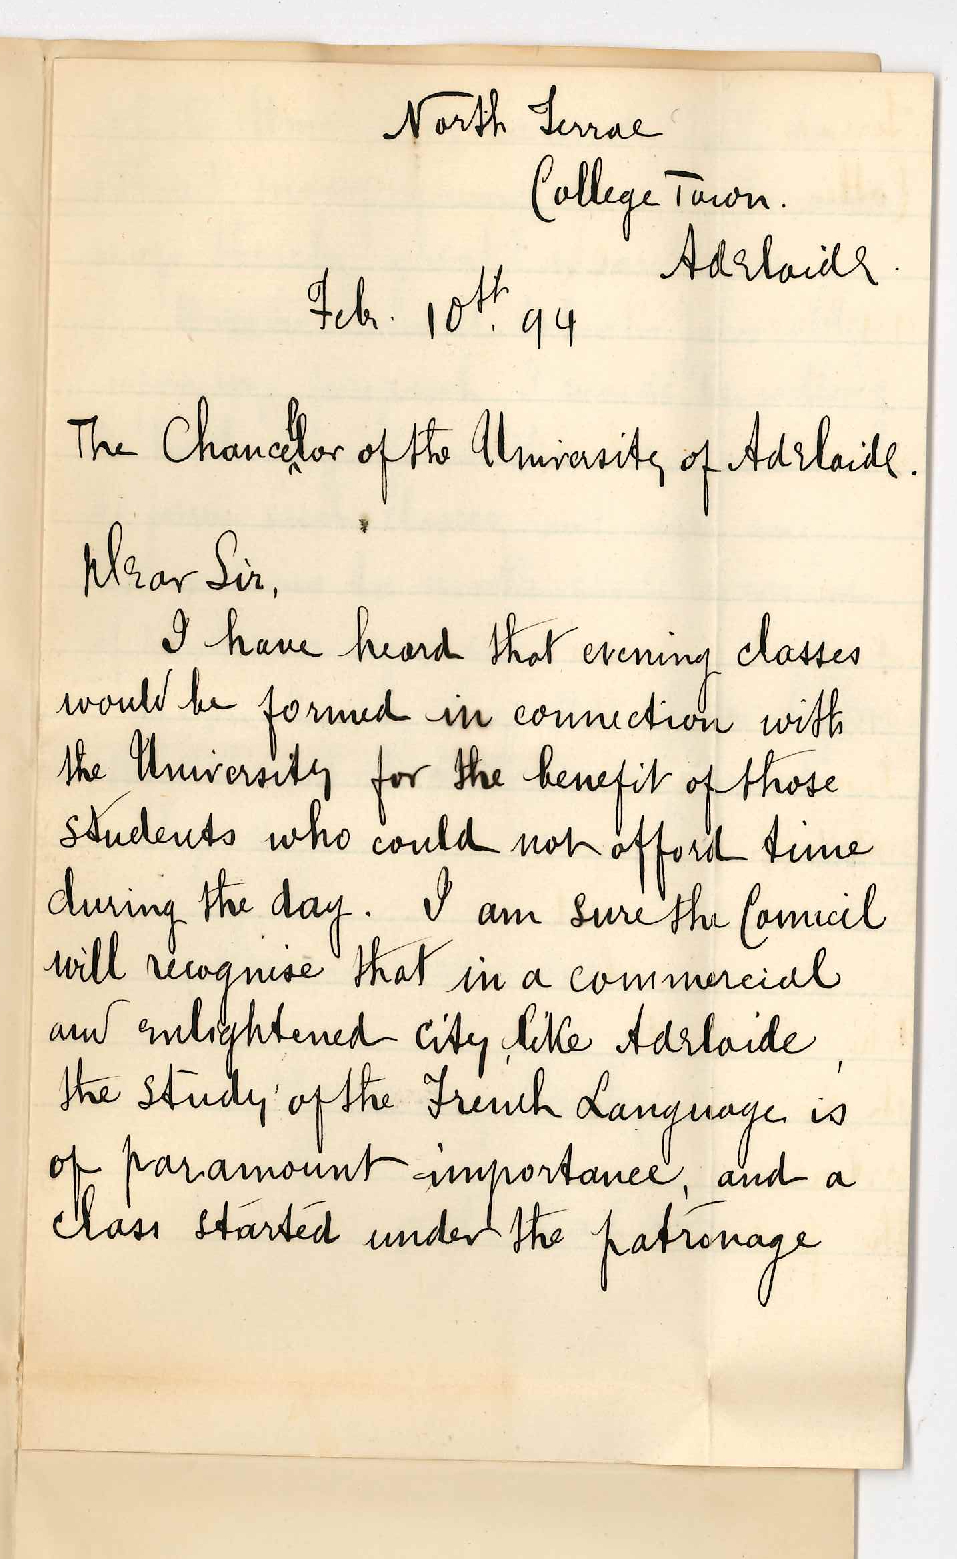 North Terrae
College Town.
Adelaide.
Feb. 10th. 94
The Chancellor of the University of Adelaide.
Dear Sir,
I have heard that evening classes
would be formed in connection with
the University for the benefit of those
students who could not afford time
during the day. I am sure the Council
will recognise that in a commercial
and enlightened city, like Adelaide,
the study of the French Language is
of paramount importance, and a
class started under the patronage